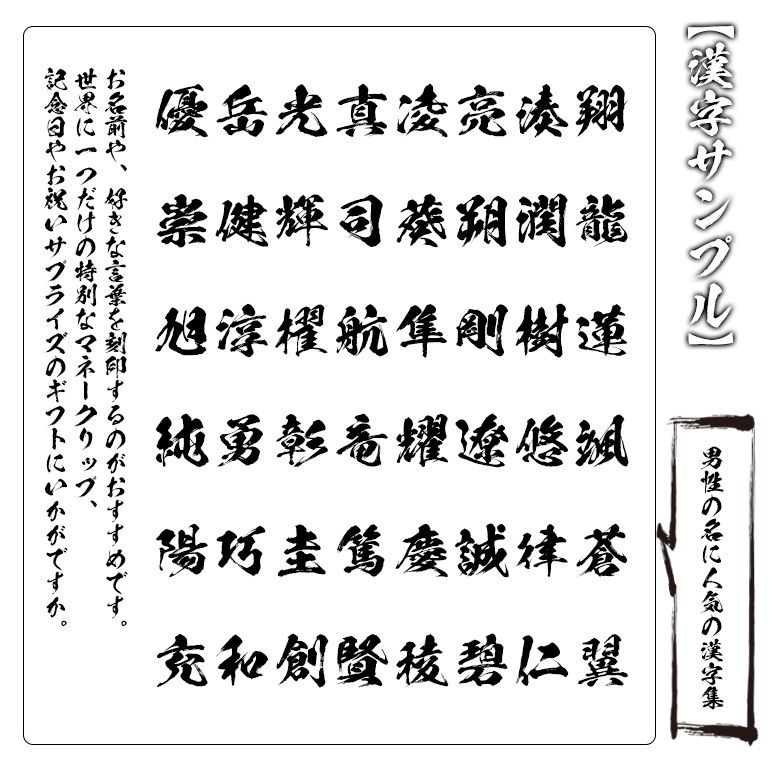 【漢字サンプル】
男性の名に人気の漢字集
翔龍蓮颯蒼翼
湊潤樹悠律仁
亮朔剛遼誠碧
凌葵隼耀慶稜
真司航竜篤賢
光輝櫂彰圭創
岳健淳勇巧和
優崇旭純陽充
お名前や、好きな言葉を刻印するのがおすすめです。
世界に一つだけの特別なマネークリップ、
記念日やお祝いサプライズのギフトにいかがですか。